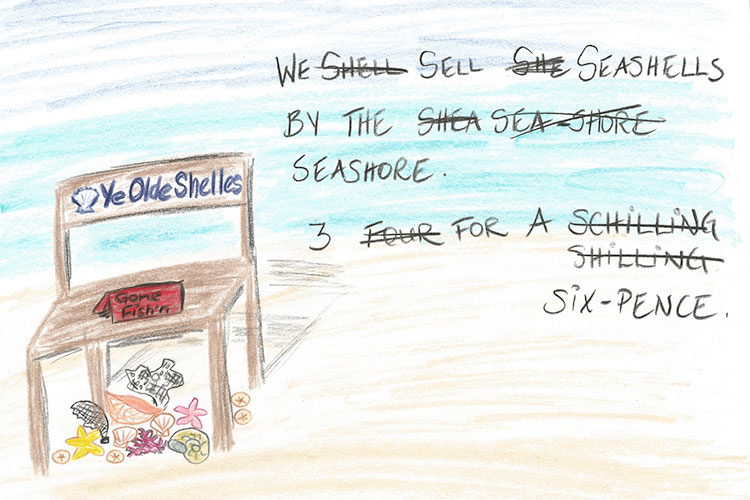 WE SHELL SELL SHE SEASHELLS
BY THE SHEA SEA-SHORE
SEASHORE.
3 FOUR FOR A SCHILLING
SHILLING
SIX-PENCE.
Ye Olde Shelles
Gone
Fish'n